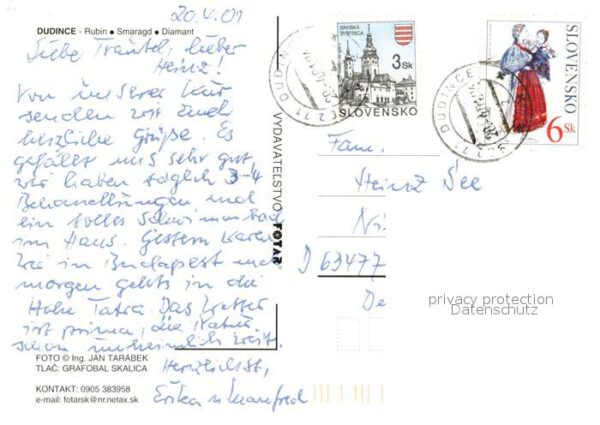 20.4.01
DUDINCE - Rubín • Smaragd • Diamant
Liebe Trautel, lieber
Heinz!
Von unserer Kur
senden wir Euch
herzliche Grüße. Es
gefällt uns sehr gut,
wir haben täglich 3-4
Behandlungen und
ein tolles Schwimmbad
im Haus. Gestern waren
wir in Budapest und
morgen gehts in die
Hohe Tatra. Das Wetter
ist prima, die Natur
schon unheimlich weit.
Herzlichst,
Erika u Manfred
FOTO © Ing. JÁN TARÁBEK
TLAČ: GRAFOBAL SKALICA
KONTAKT: 0905 383958
e-mail: fotarsk@nr.netax.sk
VYDAVATEĽSTVO FOTAR
DUDINCE
BANSKÁ BYSTRICA
3 Sk
SLOVENSKO
DUDINCE
SLOVENSKO
6 Sk
Fam.
Heinz See
Ni
D 63477
De
privacy protection
Datenschutz